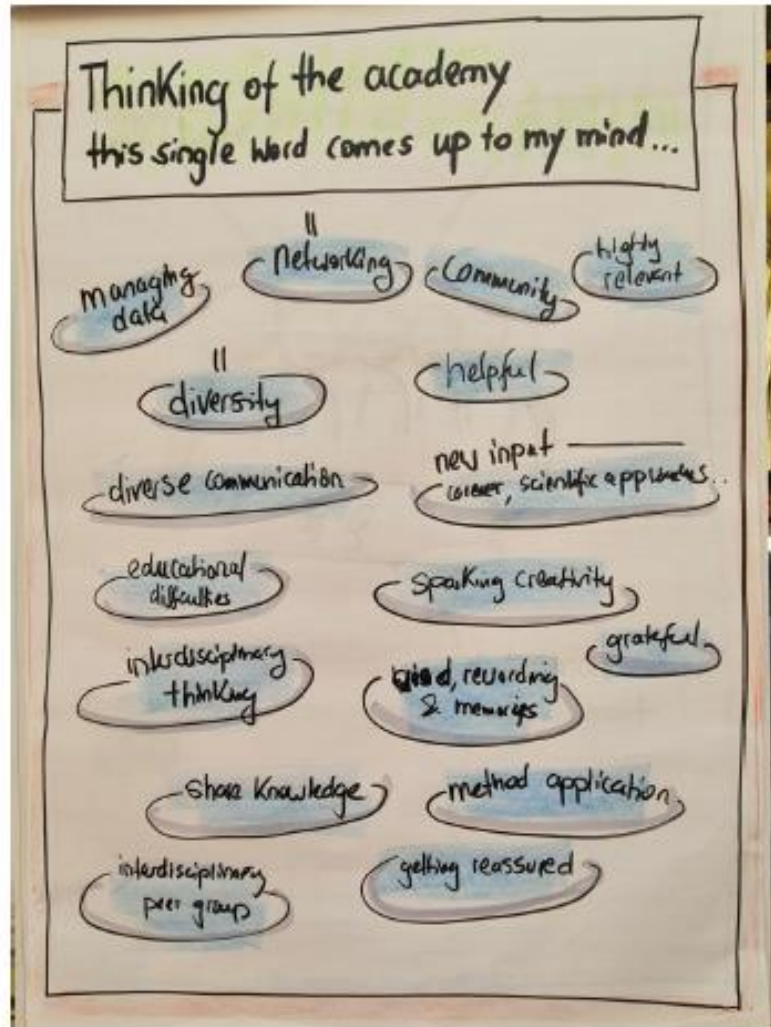 Thinking of the academy
this single word comes up to my mind...
||
networking
community
highly
relevant
managing
data
||
diversity
helpful
diverse communication
new input
career, scientific approaches..
educational
difficulties
sparking creativity
grateful
interdisciplinary
thinking
, rewarding
& memories
share knowledge
method application
interdisciplinary
peer group
getting reassured